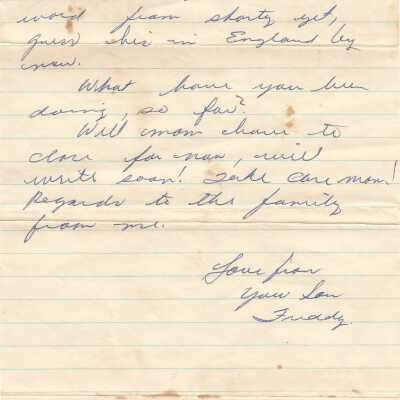 word from shorty yet,
guess he's in England by
now.
What have you been
doing, so far?
Will mom have to
close for now, will
write soon! Take care mom!
Regards to the family
from me.
Love from
Your Son
Freddy.